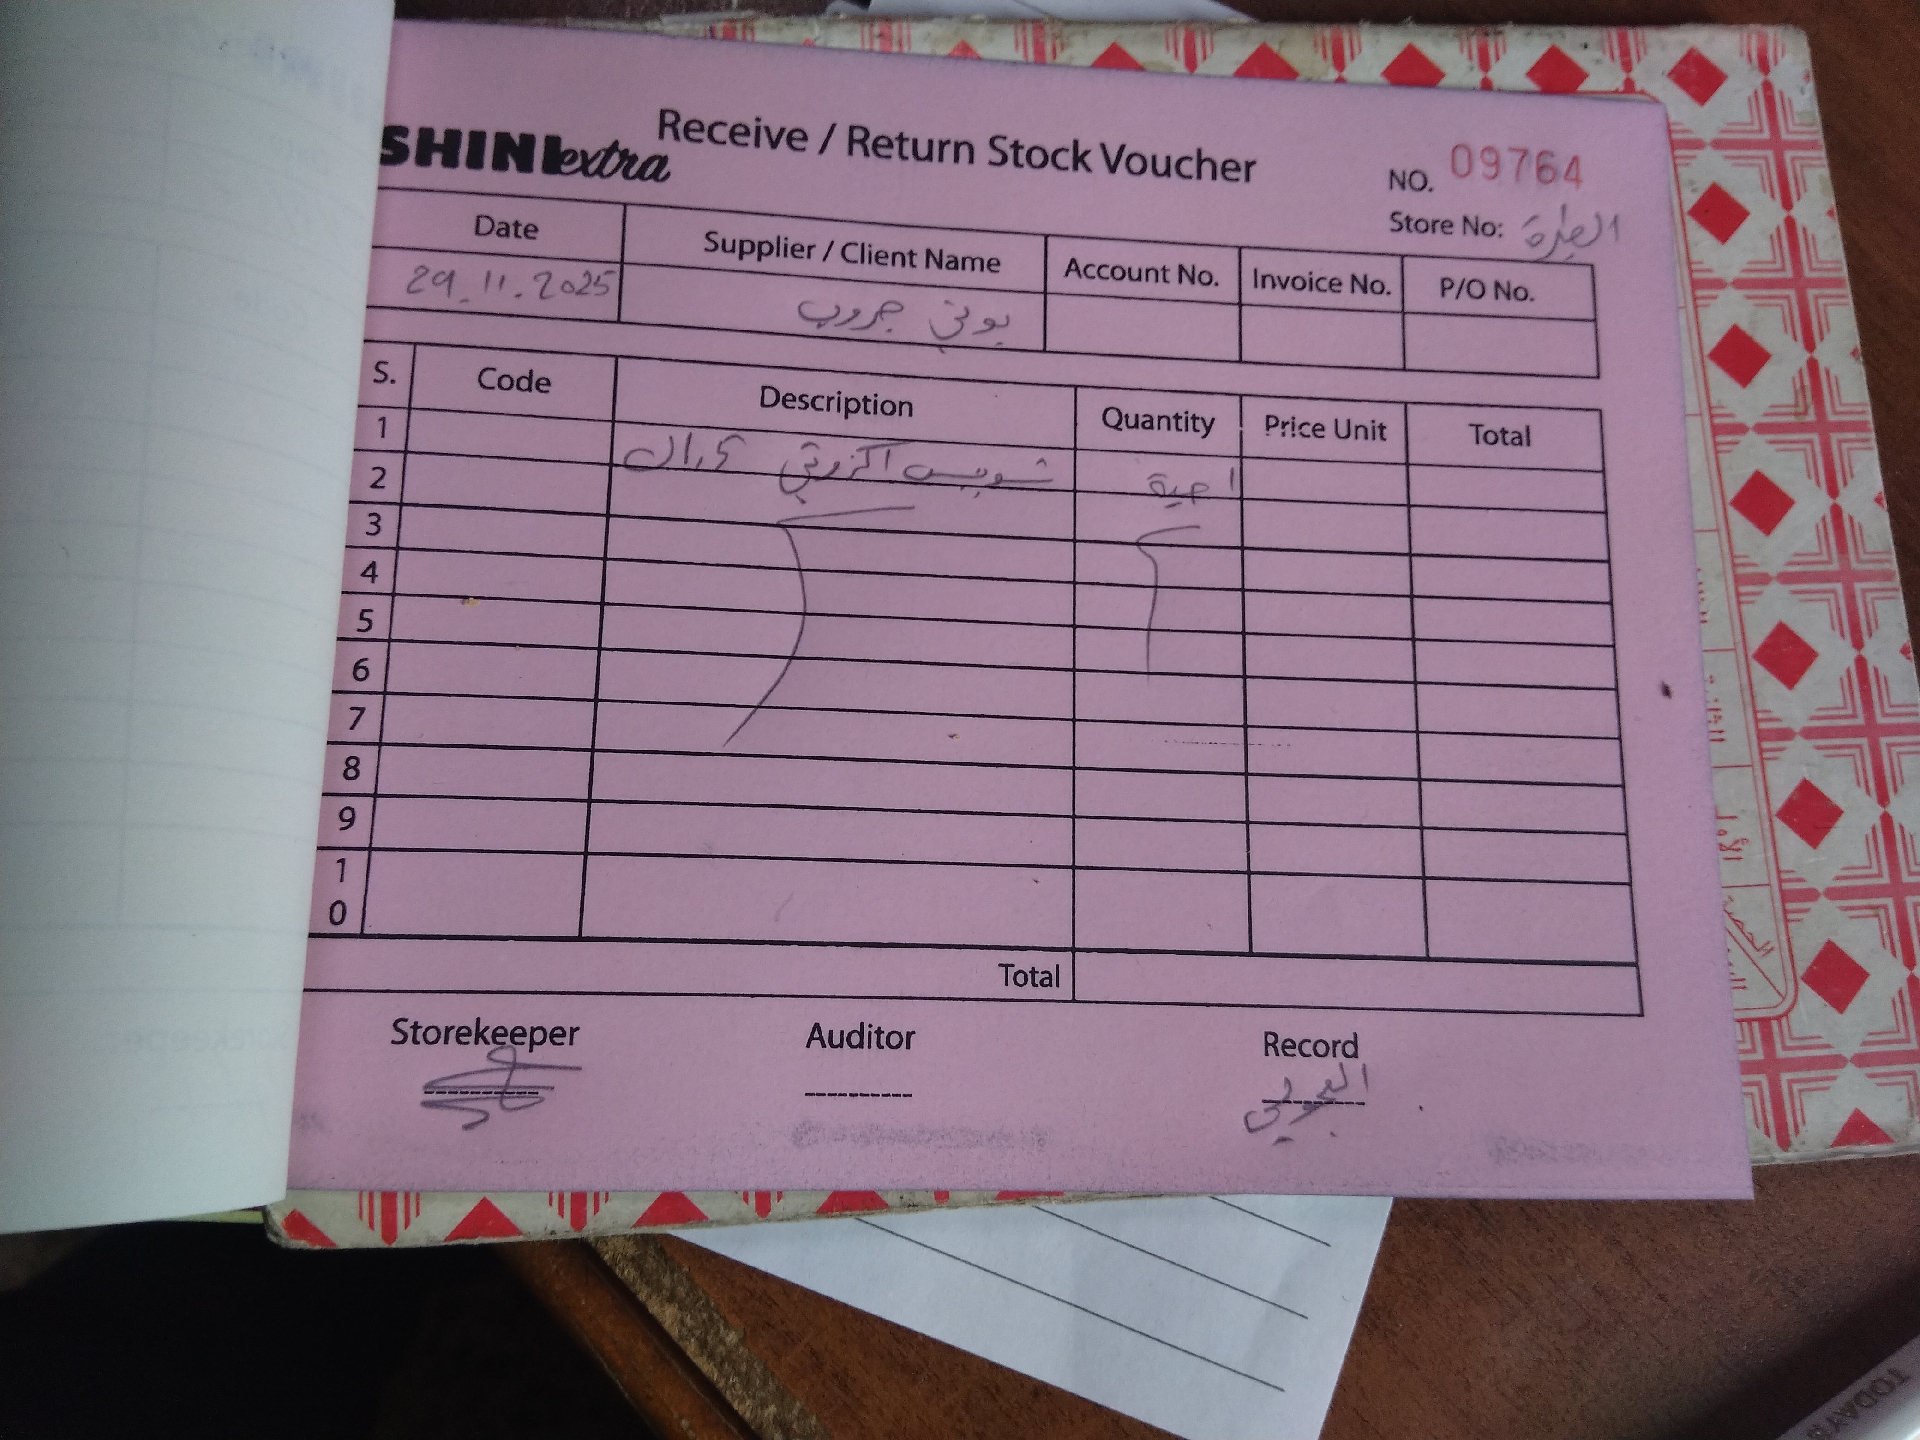 SHINE extra
Receive / Return Stock Voucher
NO. 09764
Store No:
Date Supplier / Client Name Account No. Invoice No. P/O No.
29.11.2025 يوني جروب
S. Code Description Quantity Price Unit Total
1
2 ١ حبة
3
4
5
6
7
8
9
10
Total
Storekeeper Auditor Record
TODAY'S